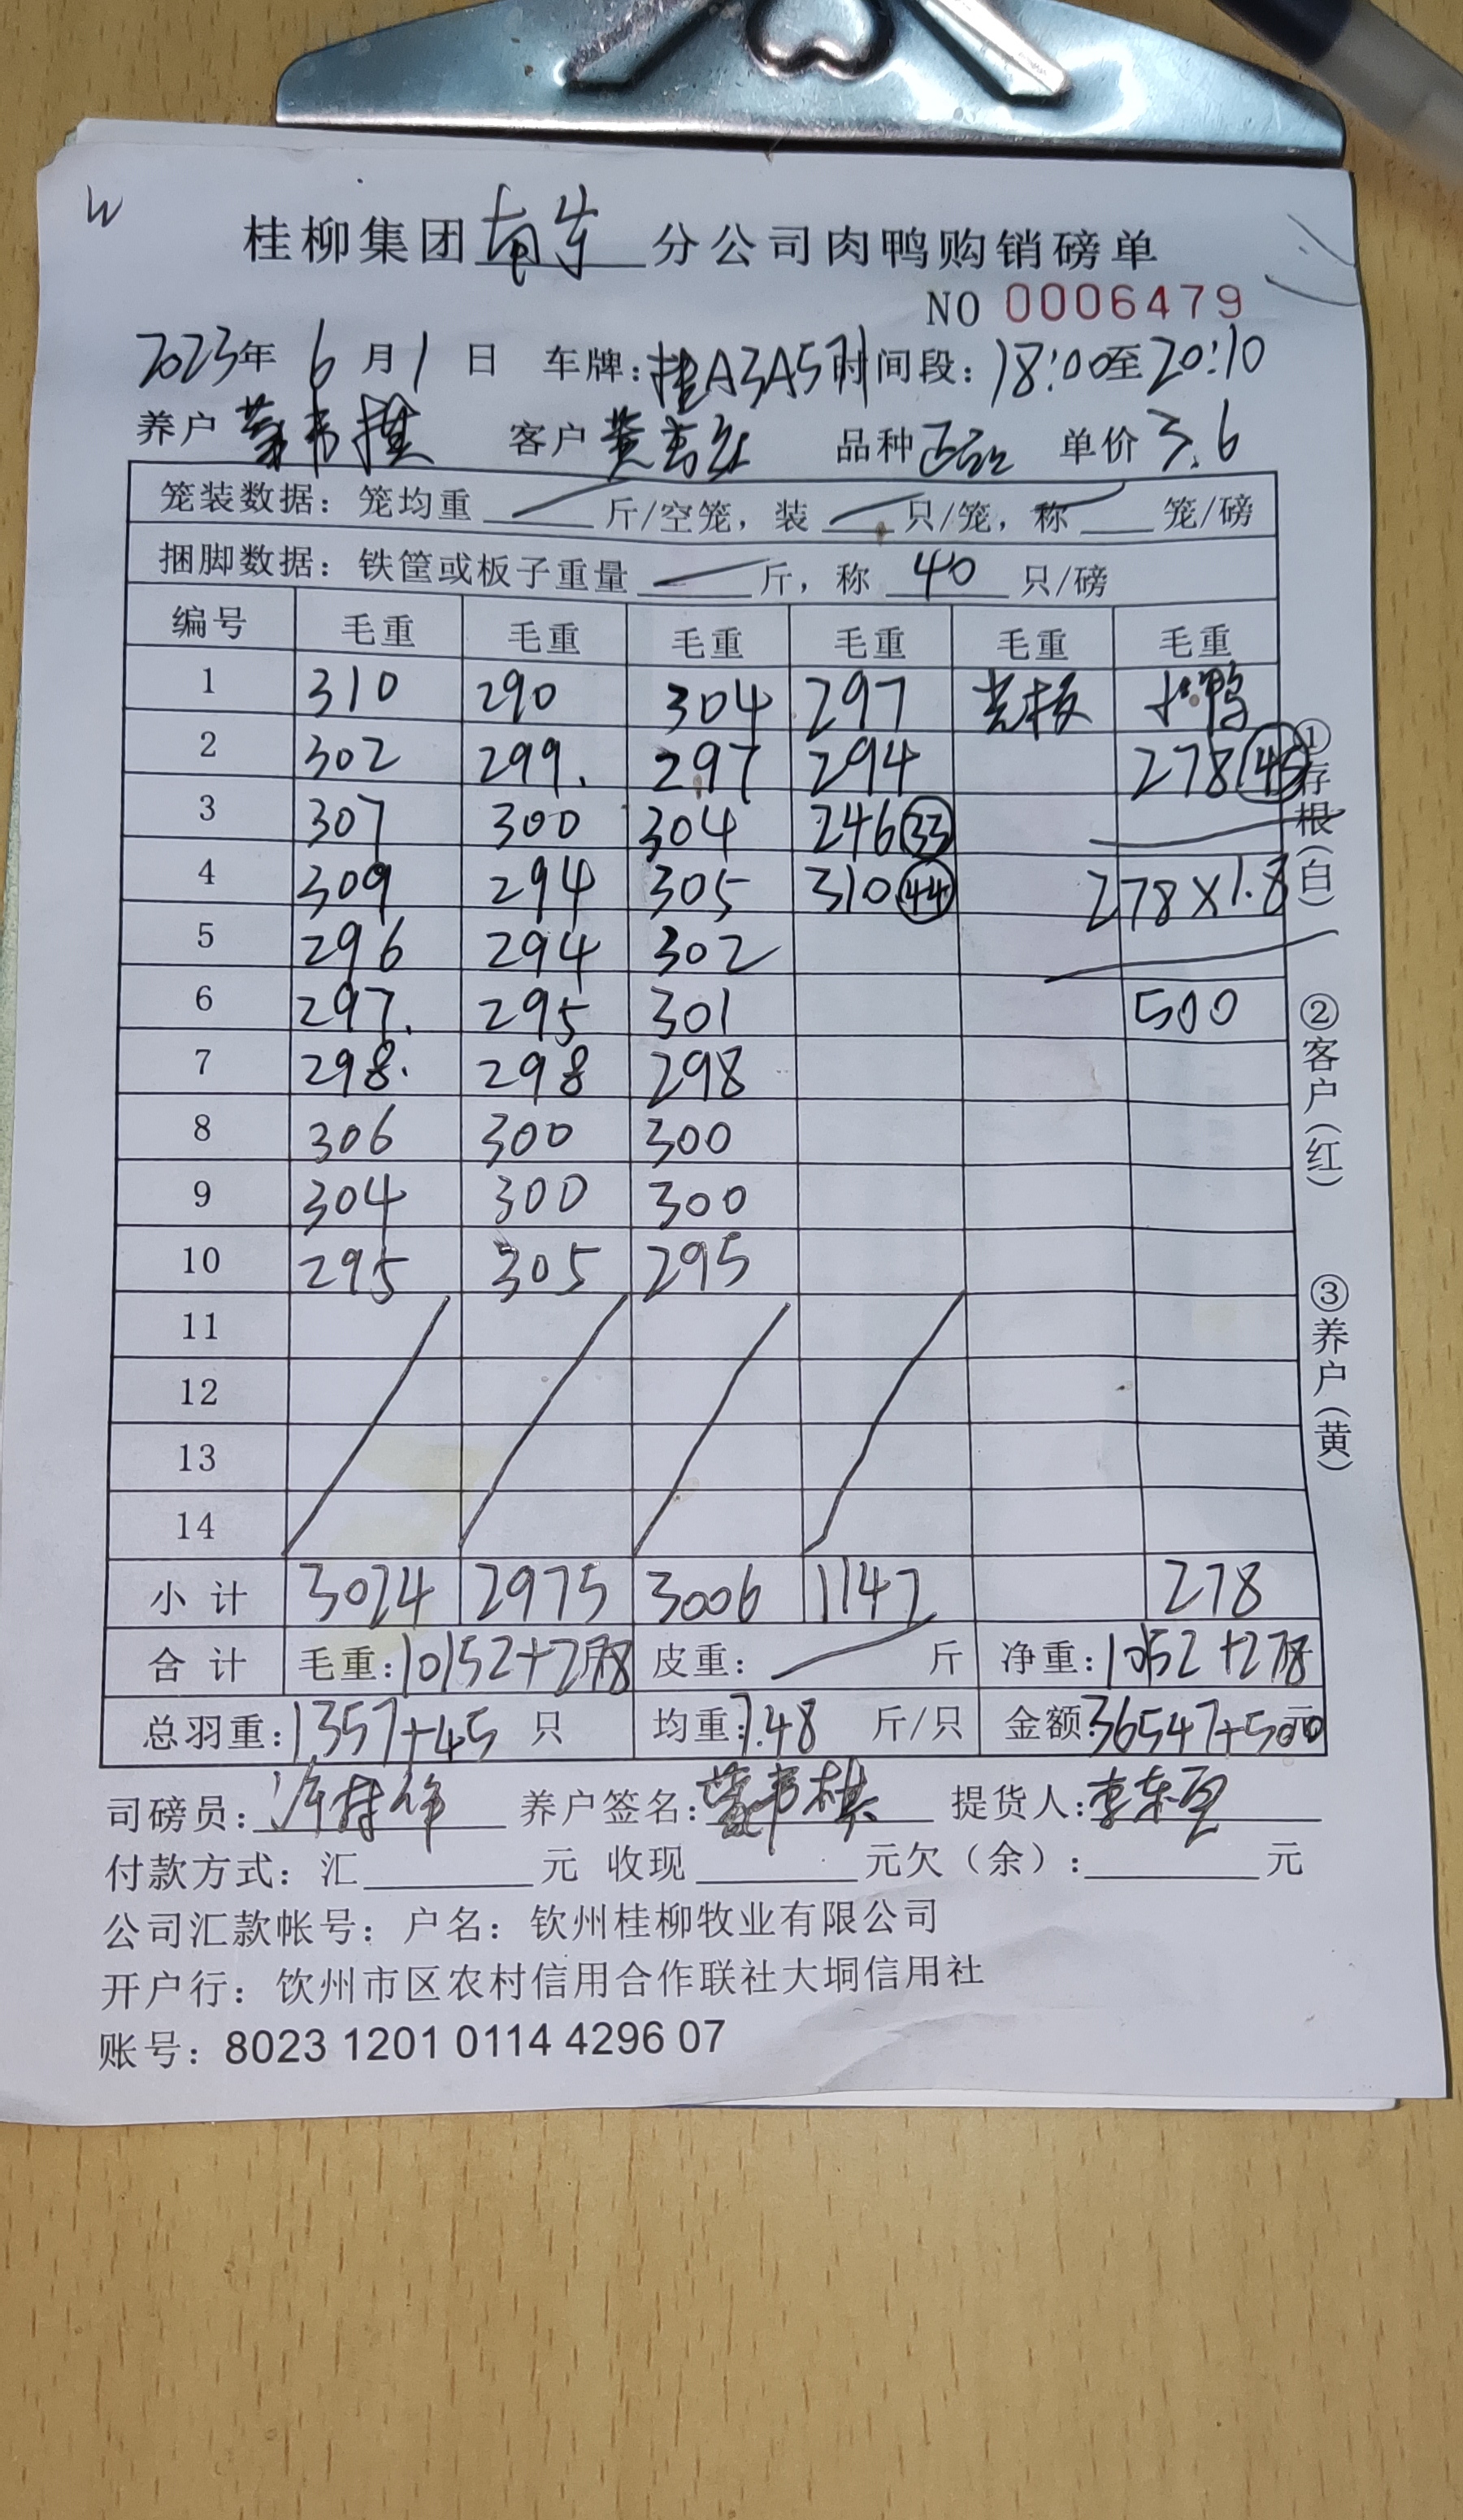 W
桂柳集团南宁分公司肉鸭购销磅单
NO 0006479
2023年 6 月 1 日 车牌:桂A3A571 时间段: 18:00至20:10
养户 客户 品种 正品 单价 3.6
笼装数据: 笼均重 斤/空笼, 装 只/笼, 称 笼/磅
捆脚数据: 铁筐或板子重量 斤, 称 40 只/磅
编号 毛重 毛重 毛重 毛重 毛重 毛重
1 310 290 304 297 老板 小鸭
2 302 299. 297 294 278(45)
3 307 300 304 246(33)
4 309 294 305 310(44) 278×1.8
5 296 294 302
6 297. 295 301 500
7 298. 298 298
8 306 300 300
9 304 300 300
10 295 305 295
11
12
13
14
小计 3024 2975 3006 1147 278
合计 毛重:10152+278 皮重: 斤 净重:10152+278
总羽重:1357+45 只 均重:7.48 斤/只 金额:36547+500元
司磅员: 养户签名: 提货人:
付款方式: 汇 元 收现 元欠(余): 元
公司汇款帐号: 户名: 钦州桂柳牧业有限公司
开户行: 钦州市区农村信用合作联社大垌信用社
账号: 8023 1201 0114 4296 07
①存根(白)
②客户(红)
③养户(黄)